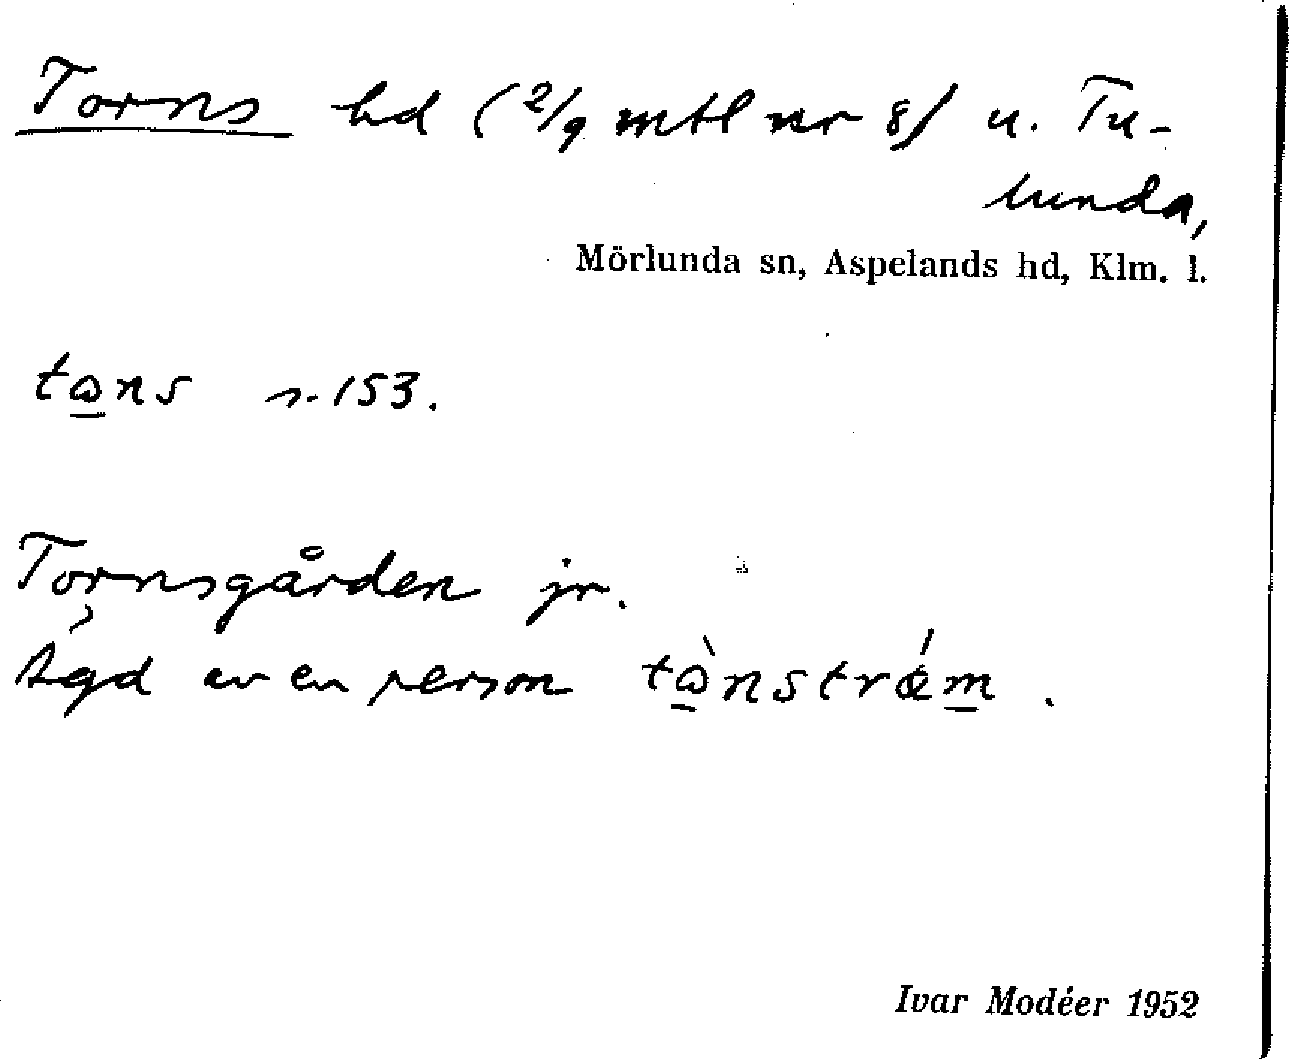 Torns hd (2/9 mtl nr 8) u. Tu-
lunda,
Mörlunda sn, Aspelands hd, Klm. l.
tɷns s. 153.
Tornsgården jr.
Ägd av en person tɷ̀nstrǿm.
Ivar Modéer 1952